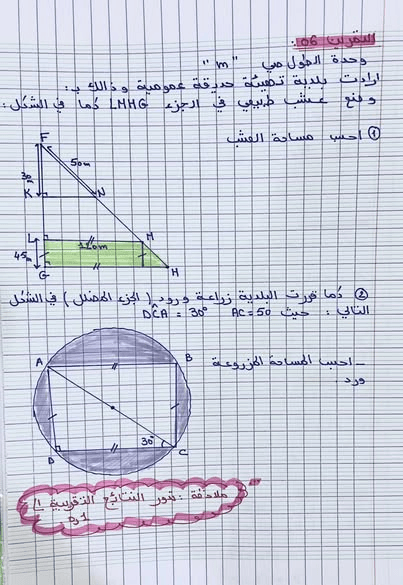 التمرين 06:
وحدة الطول هي "m"
ارادت بلدية تهيئة حديقة عمومية وذالك بـ:
وضع عشب طبيعي في الجزء LMHG كما في الشكل:
① احسب مساحة العشب
F
50m
30m
K
N
L
M
120m
45m
G
H
② كما قررت البلدية زراعة ورود (الجزء المظلل) في الشكل
التالي: حيث AC=50 DĈA = 30°
A
B
- احسب المساحة المزروعة
ورد.
30°
D
C
ملاحظة: تدور النتائج التقريبية إلى